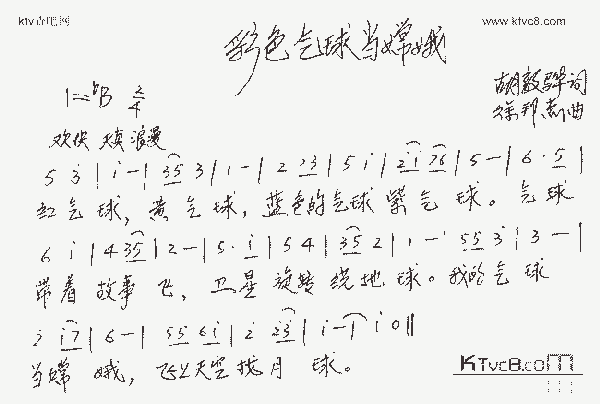 ktv吉吧网
www.ktvc8.com
彩色气球当嫦娥
1=♭B 2/4
胡敦骅词
徐邦杰曲
欢快 天真 浪漫
5 3 | i - | 35 3 | 1 - | 2 23 | 5 i | 2i 76 | 5 - | 6 · 5 |
红气球，黄气球，蓝色的气球紫气球。气球
6 i | 4 35 | 2 - | 5 · i | 5 4 | 35 2 | 1 - | 55 3 | 3 - |
带着故事飞，卫星旋转绕地球。我的气球
2 i7 | 6 - | 55 6i | 2 23 | i - | i 0 ||
当嫦娥，飞上天空找月球。
KTvc8.com